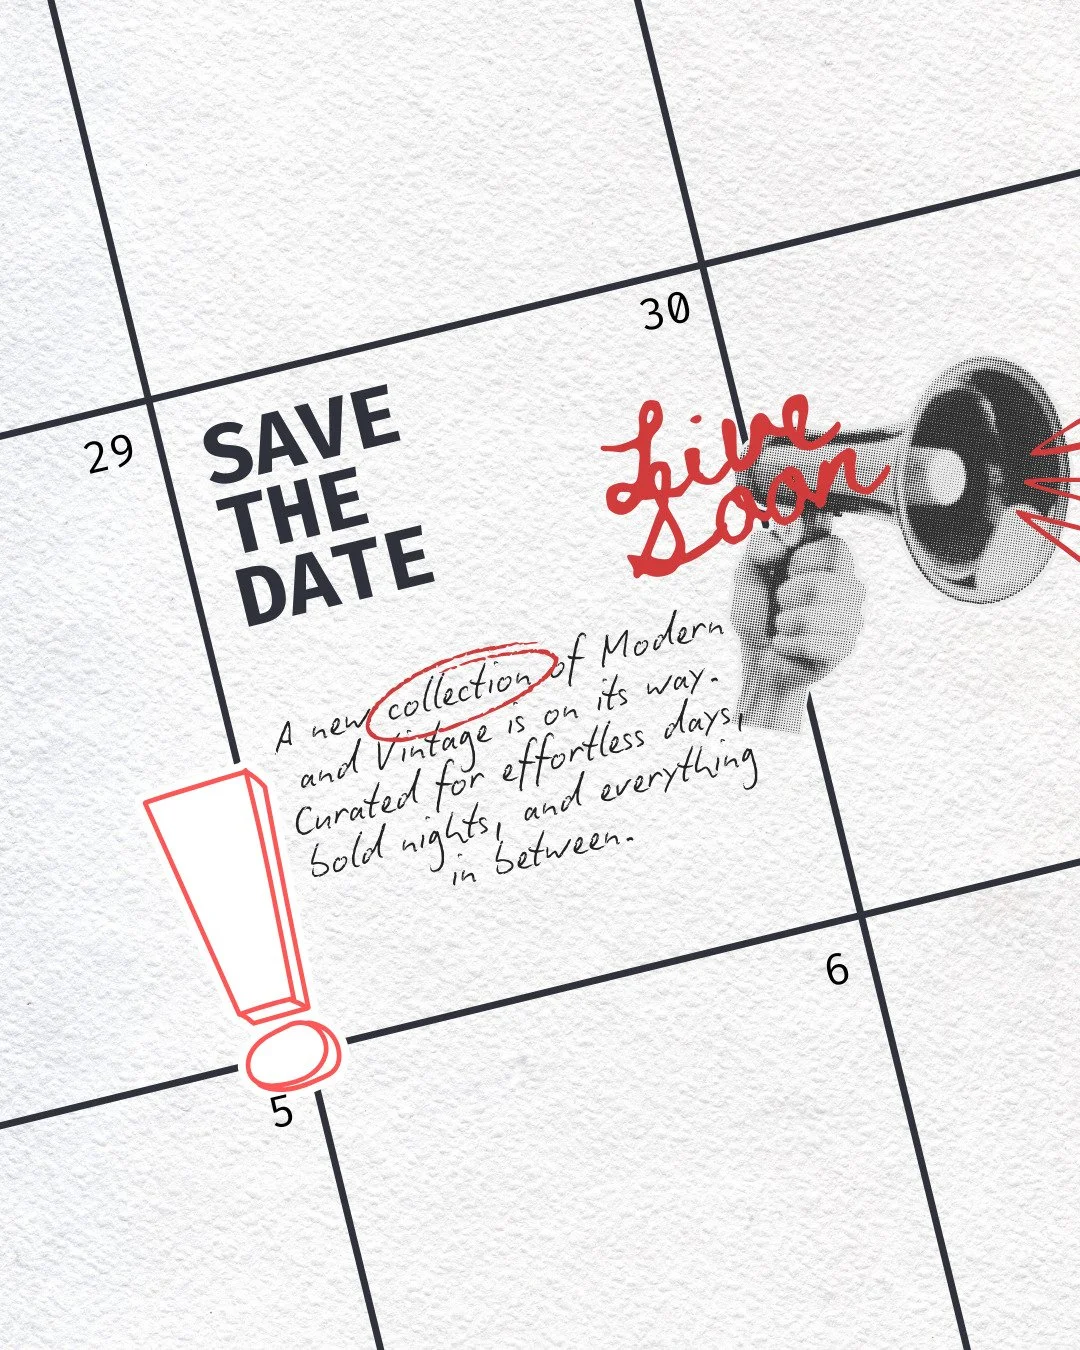 30
29
SAVE
THE
DATE
Live
Soon
A new collection of Modern
and Vintage is on its way.
Curated for effortless days,
bold nights, and everything
in between.
6
5